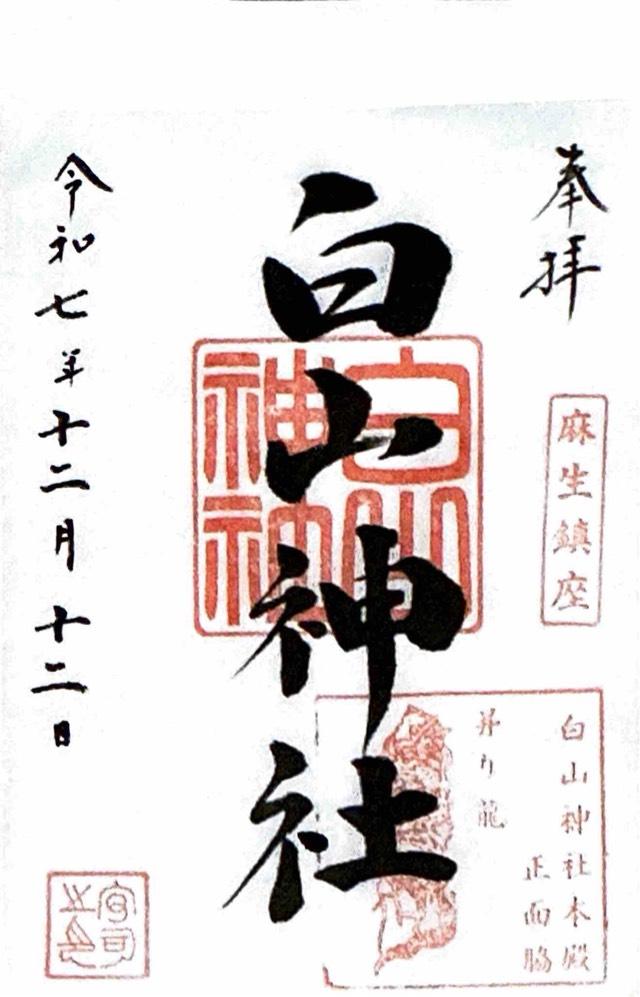 奉拝
麻生鎮座
白山神社本殿
正面脇
昇り龍
白山神社
令和七年十二月十二日
宮司之印